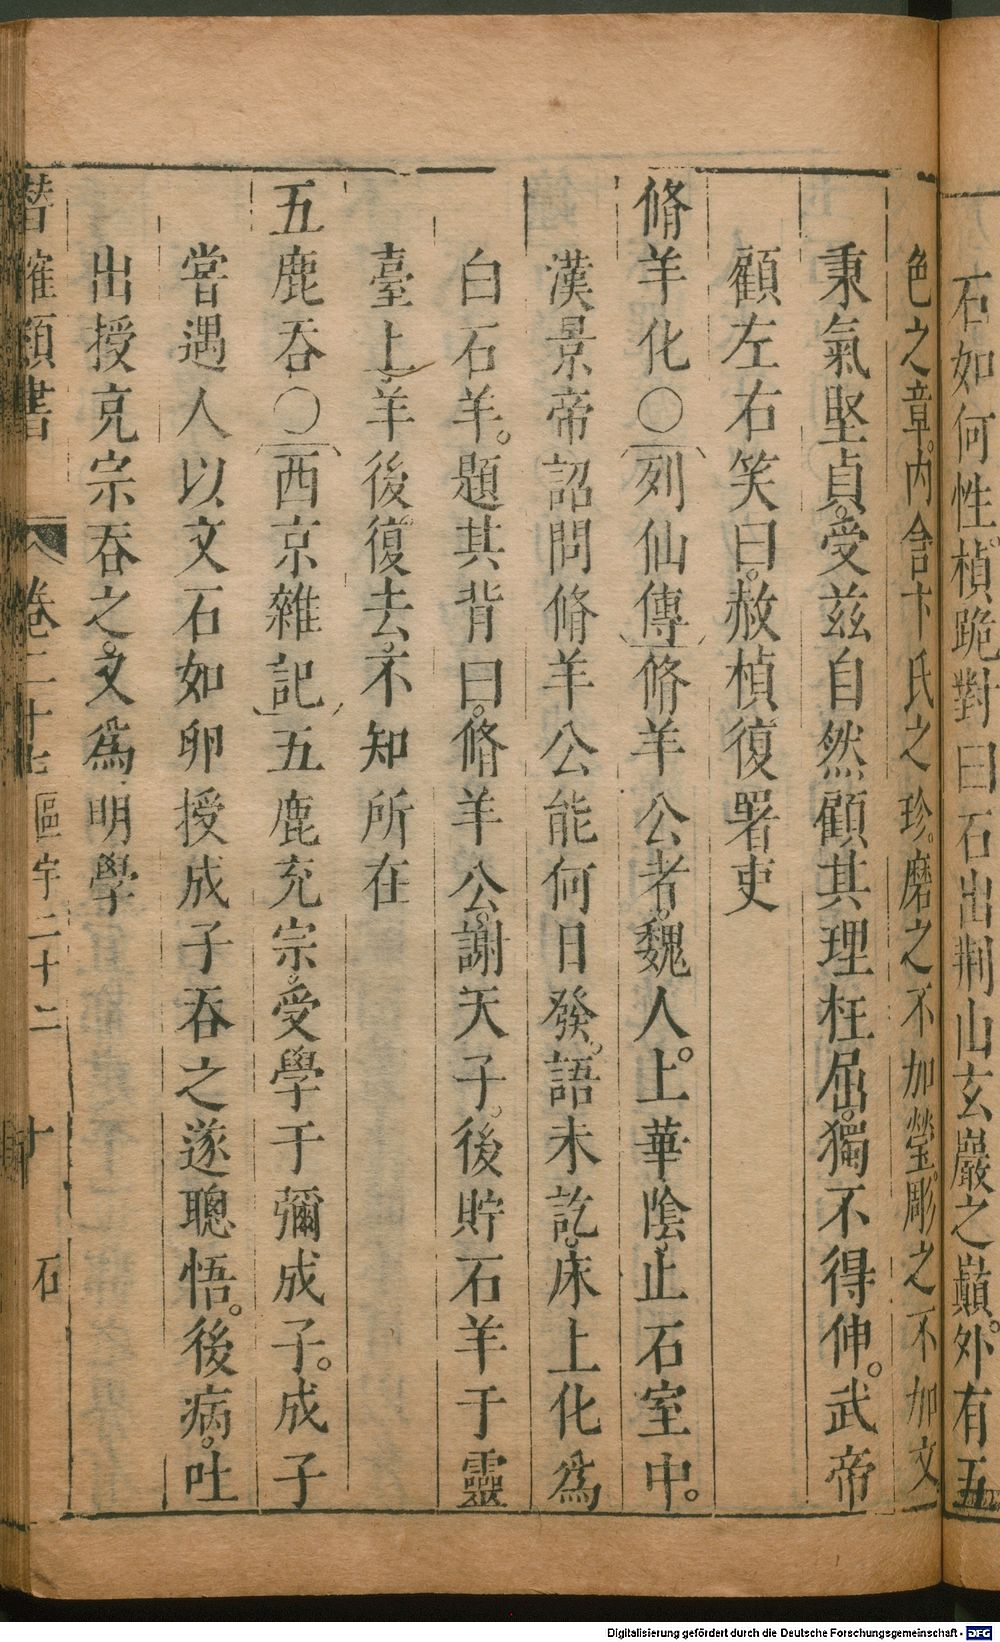 石如何性。楨跪對曰石出荆山玄巖之巔。外有五
色之章。内含卞氏之珍。磨之不加瑩。彫之不加文
秉氣堅貞。受兹自然顧其理枉屈。獨不得伸。武帝
顧左右笑曰。赦楨復署吏
脩羊化〇列仙傳脩羊公者。魏人。上華陰。止石室中。
漢景帝詔問脩羊公能何日發。語未訖。床上化爲
白石羊。題其背曰。脩羊公。謝天子。後貯石羊于靈
臺上。羊後復去。不知所在
五鹿吞〇西京雜記五鹿充宗。受學于彌成子。成子
嘗遇人以文石如卵授成子吞之遂聰悟。後病。吐
出授充宗吞之。又爲明學
潛確類書 卷二十七 區宇二十二 十 石
Digitalisierung gefördert durch die Deutsche Forschungsgemeinschaft - DFG